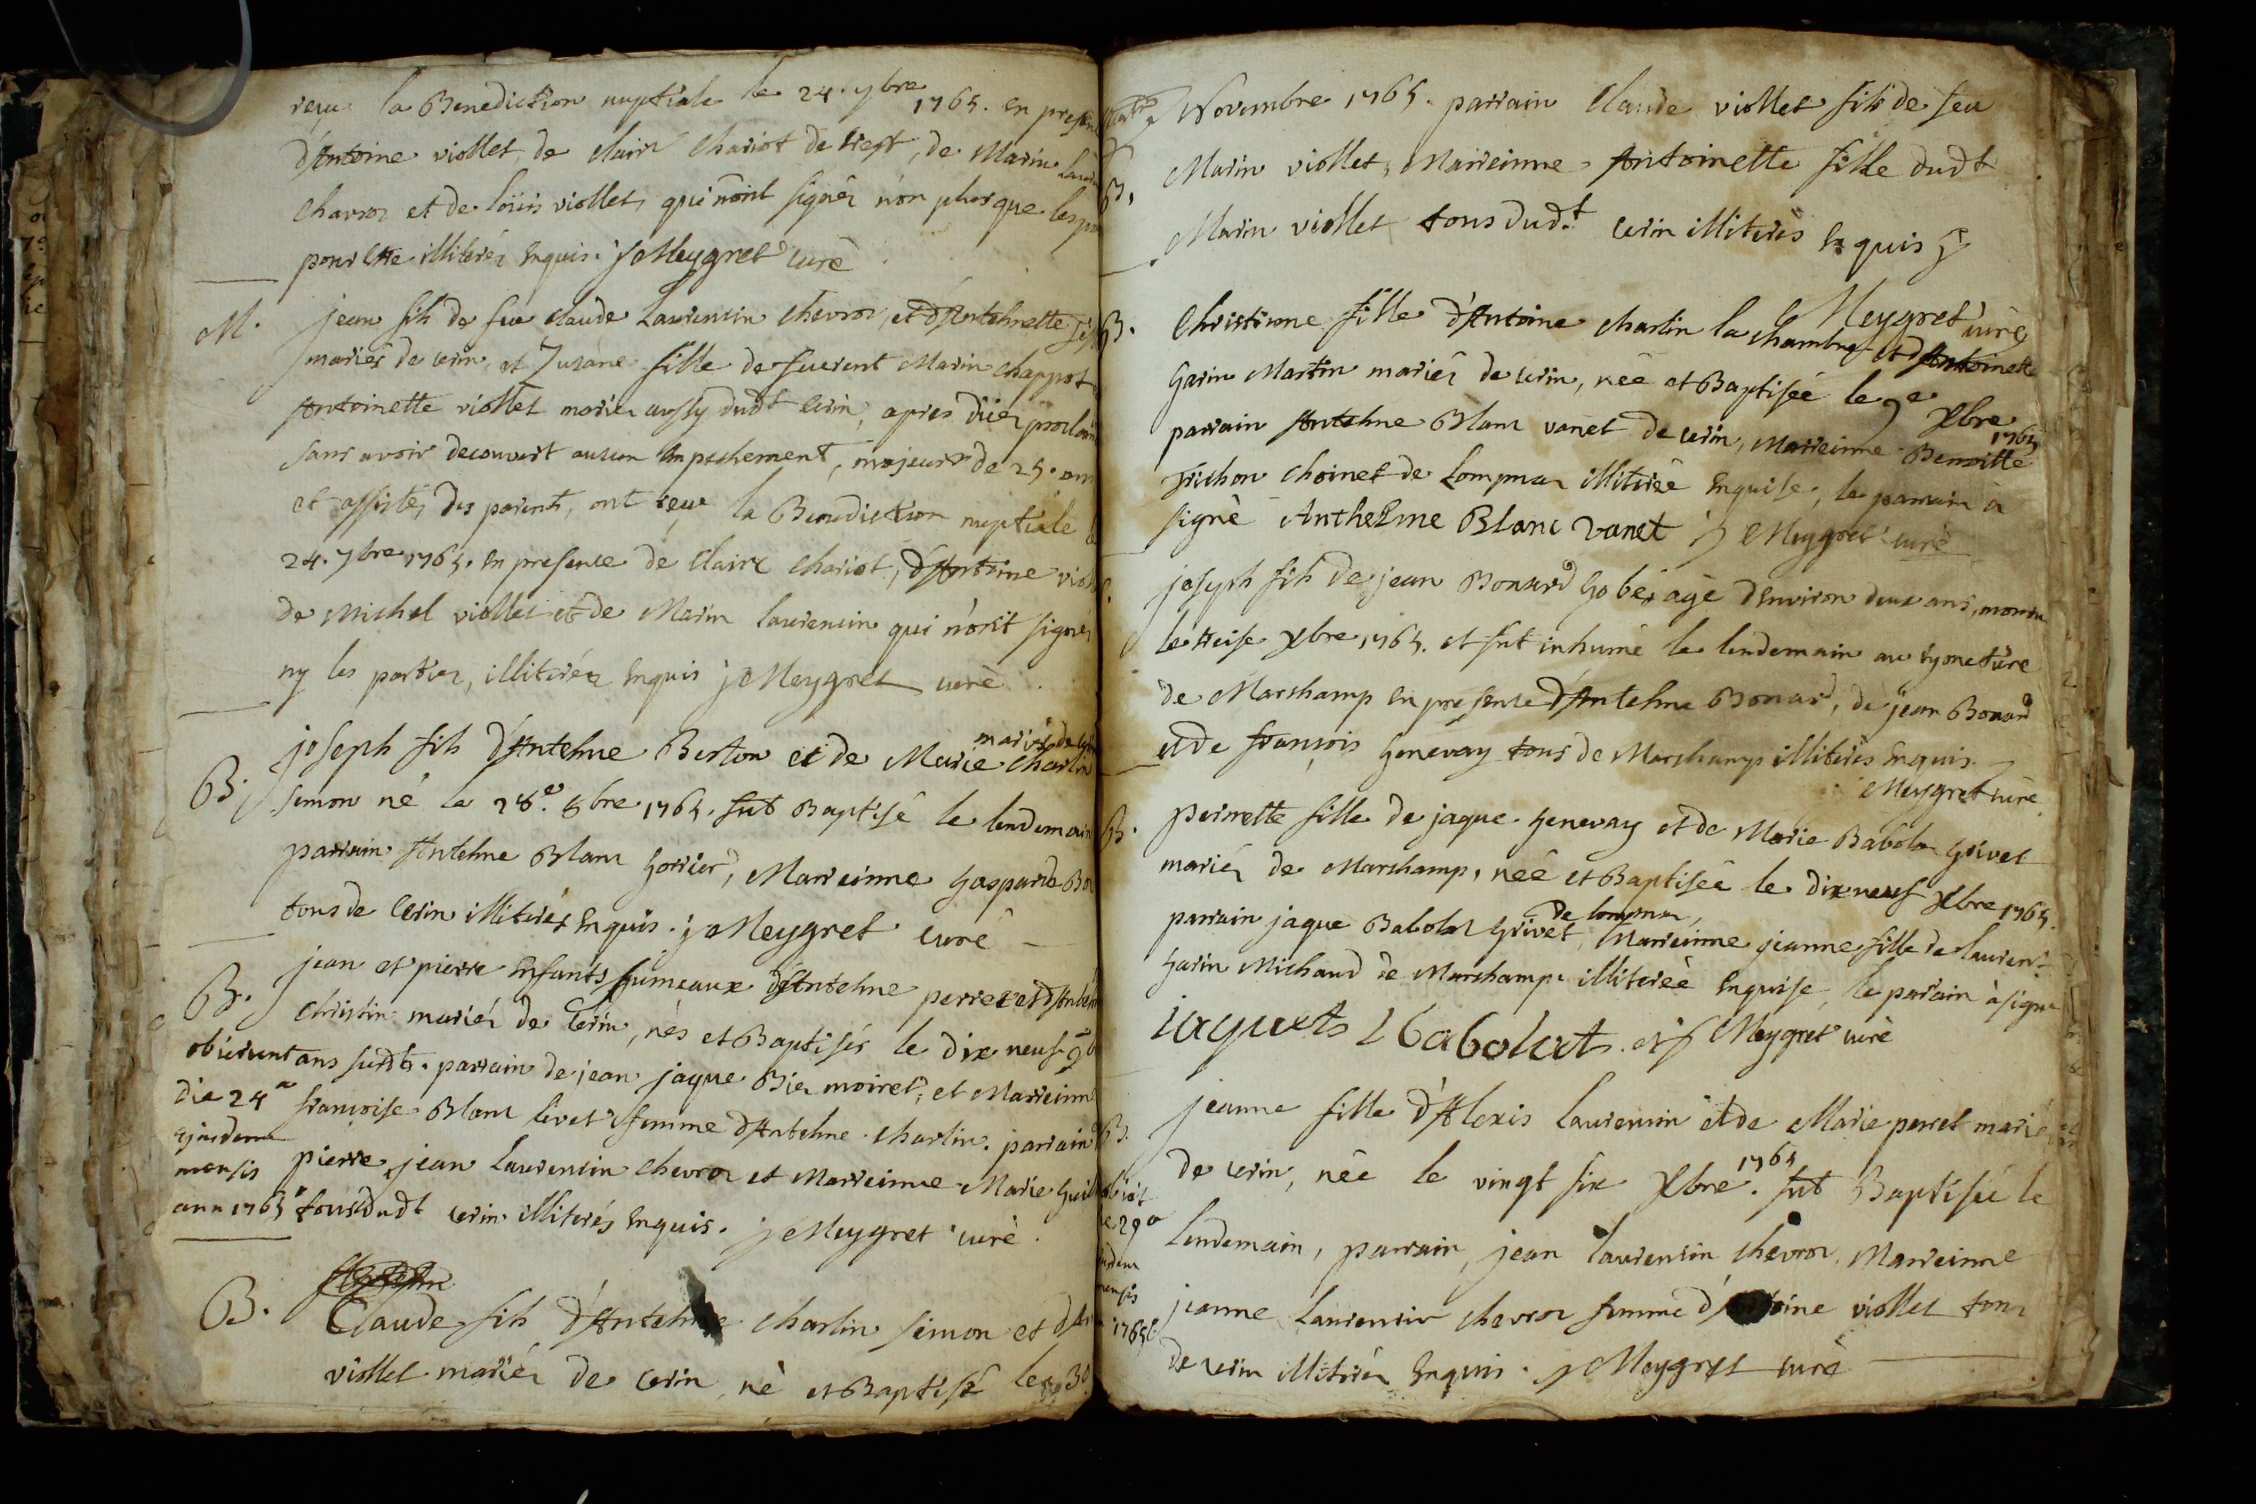 reçu la Benediction nuptiale le 24. 7bre 1765. en presen
d'Antoine viollet, de clair chariot de trept, de Marin
chavroz et de loüis viollet, qui n'ont signés non plus que les
pour etre illiterés enquis. j Meygret curè
M. jean fils de feu claude Laurensin chevroz, et d'Antehnette
mariés de cerin, et Suzane fille de fuerent Marin chappot
Antoinette viollet mariez aussy dudt cerin, apres
sans avoir decouvert aucun empechement, majeurs de 25. ans
et assistés des parents, ont reçu la Benediction nuptiale
24. 7bre 1765. en presence de clair chariot, d'Antoine
de Michel viollet et de Marin laurensin qui n'ont signés
ny les parties, illiterés enquis j Meygret curè
mariés de
B. joseph fils d'Antehne Berton et de Marie charlin
simon né le 28e. 8bre 1765. fut Baptisé le lendemain
parrain Antehne Blanc gorrier, Marreinne Gasparde
tous de cerin illiterés enquis. j Meygret curé
B. jean et pierre enfants jumeaux d'Antehne perret et
christin mariés de Cerin, nés et Baptisés le dix neuf 9b
ans sudts. parrain de jean jaque Biez moiret, et Marreinne
françoise Blanc livet femme d'Antehne charlin. parrain
pierre jean laurensin chevroz et Marreinne Marie
tous dudt cerin illiterés enquis. j Meygret curè.
obierunt
die 24a
ejusdem
mensis
ann 1765
B. Claude fils d'Antehne charlin simon et
viollet mariés de cerin, né et Baptisé le 30
Novembre 1765. parrain Claude viollet fils de feu
B. Marin viollet, Marreinne Antoinette fille dudt
Marin viollet tous dudt. cerin illiterés enquis j
Meygret curè
B. Christinne fille d'Antoine charlin la chambre et d'Antoinette
Garin Martin mariés de cerin, née et Baptisée le 9e Xbre 1765
parrain Antehne Blanc vanet de cerin, Marreinne Benoitte
trichon choinet de Lompnaz illiterée enquise, le parrain a
signè Anthelme Blanc vanet j Meygret curè
joseph fils de jean Bonard gobé, agè d'environ deux ans, mourut
le treise Xbre 1765. et fut inhumé le lendemain au cymetiere
de Marchamp en presence d'Antehne Bonard, de jean Bonard
et de françois genevay tous de Marchamp illiterés enquis
Meygret curè
B. perrette fille de jaque genevay et de Marie Babolaz Grivet
mariés de Marchamp, née et Baptisée le dix neuf Xbre 1765.
parrain jaque Babolaz Grivet, de lompnaz, Marreinne jeanne fille de laurent
Garin Michaud de Marchamp illiterée enquise, le parrain a signe
iaquets babolat et j Meygret curè
B. jeanne fille d'Alexis laurensin et de Marie perret mariés
de cerin, née le vingt six Xbre. 1765 fut Baptisée le
lendemain, parrain, jean laurensin chevroz, Marreinne
jeanne Laurensin chevroz femme d'Antoine viollet tous
de cerin illiterés enquis. j Meygret curè
obiit
29a
mensis
1765